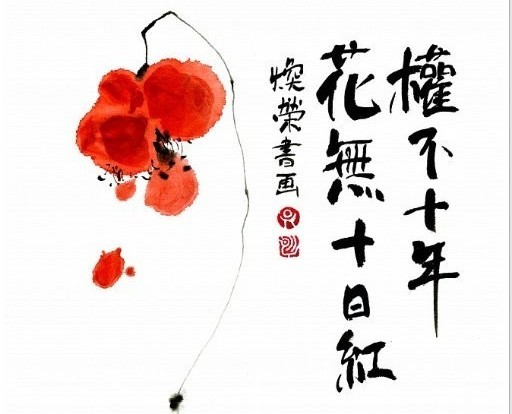 權不十年
花無十日紅
煥榮書画